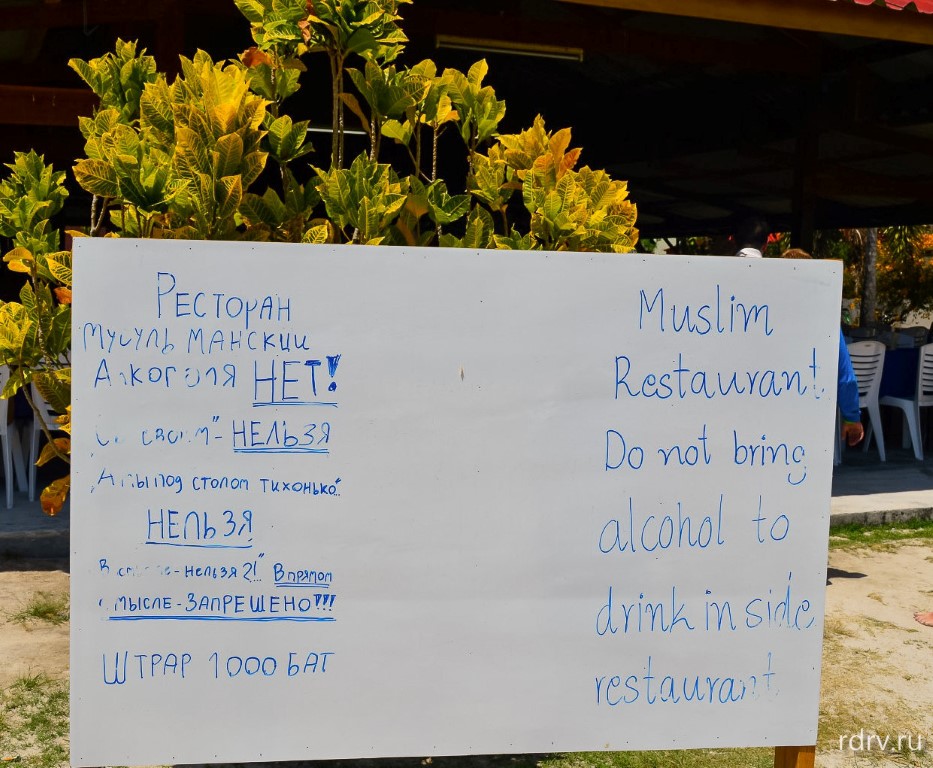 РЕСТОРАН
МУСУЛЬМАНСКИЙ
АЛКОГОЛЯ НЕТ!
СО СВОИМ"- НЕЛЬЗЯ
„А МЫ ПОД СТОЛОМ ТИХОНЬКО"
НЕЛЬЗЯ
В СМЫСЛЕ-НЕЛЬЗЯ?!" В ПРЯМОМ
СМЫСЛЕ-ЗАПРЕЩЕНО!!!
ШТРАР 1000 БАТ
Muslim
Restaurant
Do not bring
alcohol to
drink inside
restaurant
rdrv.ru